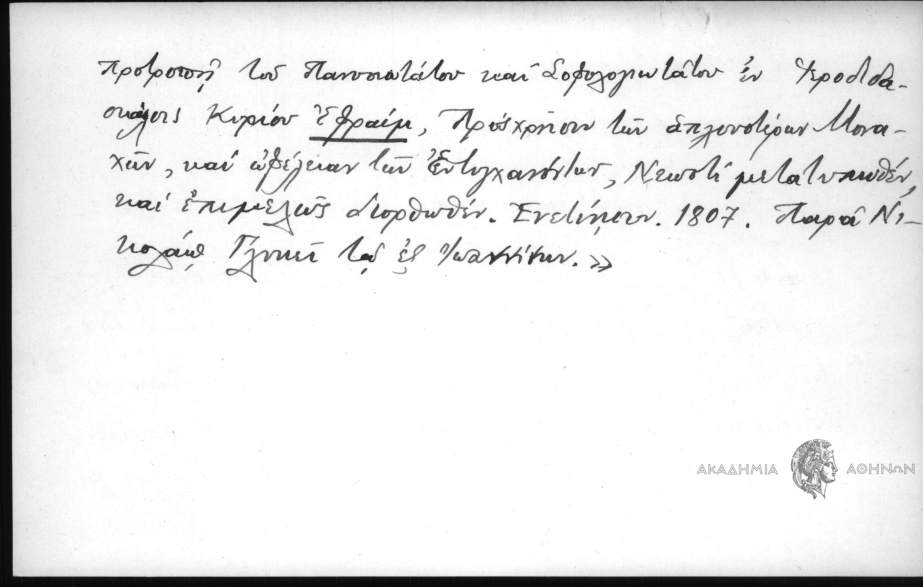 προτροπῇ τοῦ Πανοσιωτάτου καὶ Σοφολογιωτάτου ἐν Ἱεροδιδα-
σκάλοις Κυρίου Ἐφραὶμ, Πρὸς χρῆσιν τῶν ἁπλουστέρων Μονα-
χῶν, καὶ ὠφέλειαν τῶν Ἐντυγχανόντων, Νεωστὶ μετατυπωθέν,
καὶ ἐπιμελῶς διορθωθέν. Ἐνετίῃσιν. 1807. Παρὰ Νι-
κολάῳ Γλυκεῖ τῷ ἐξ Ἰωαννίνων.»
ΑΚΑΔΗΜΙΑ ΑΘΗΝΩΝ